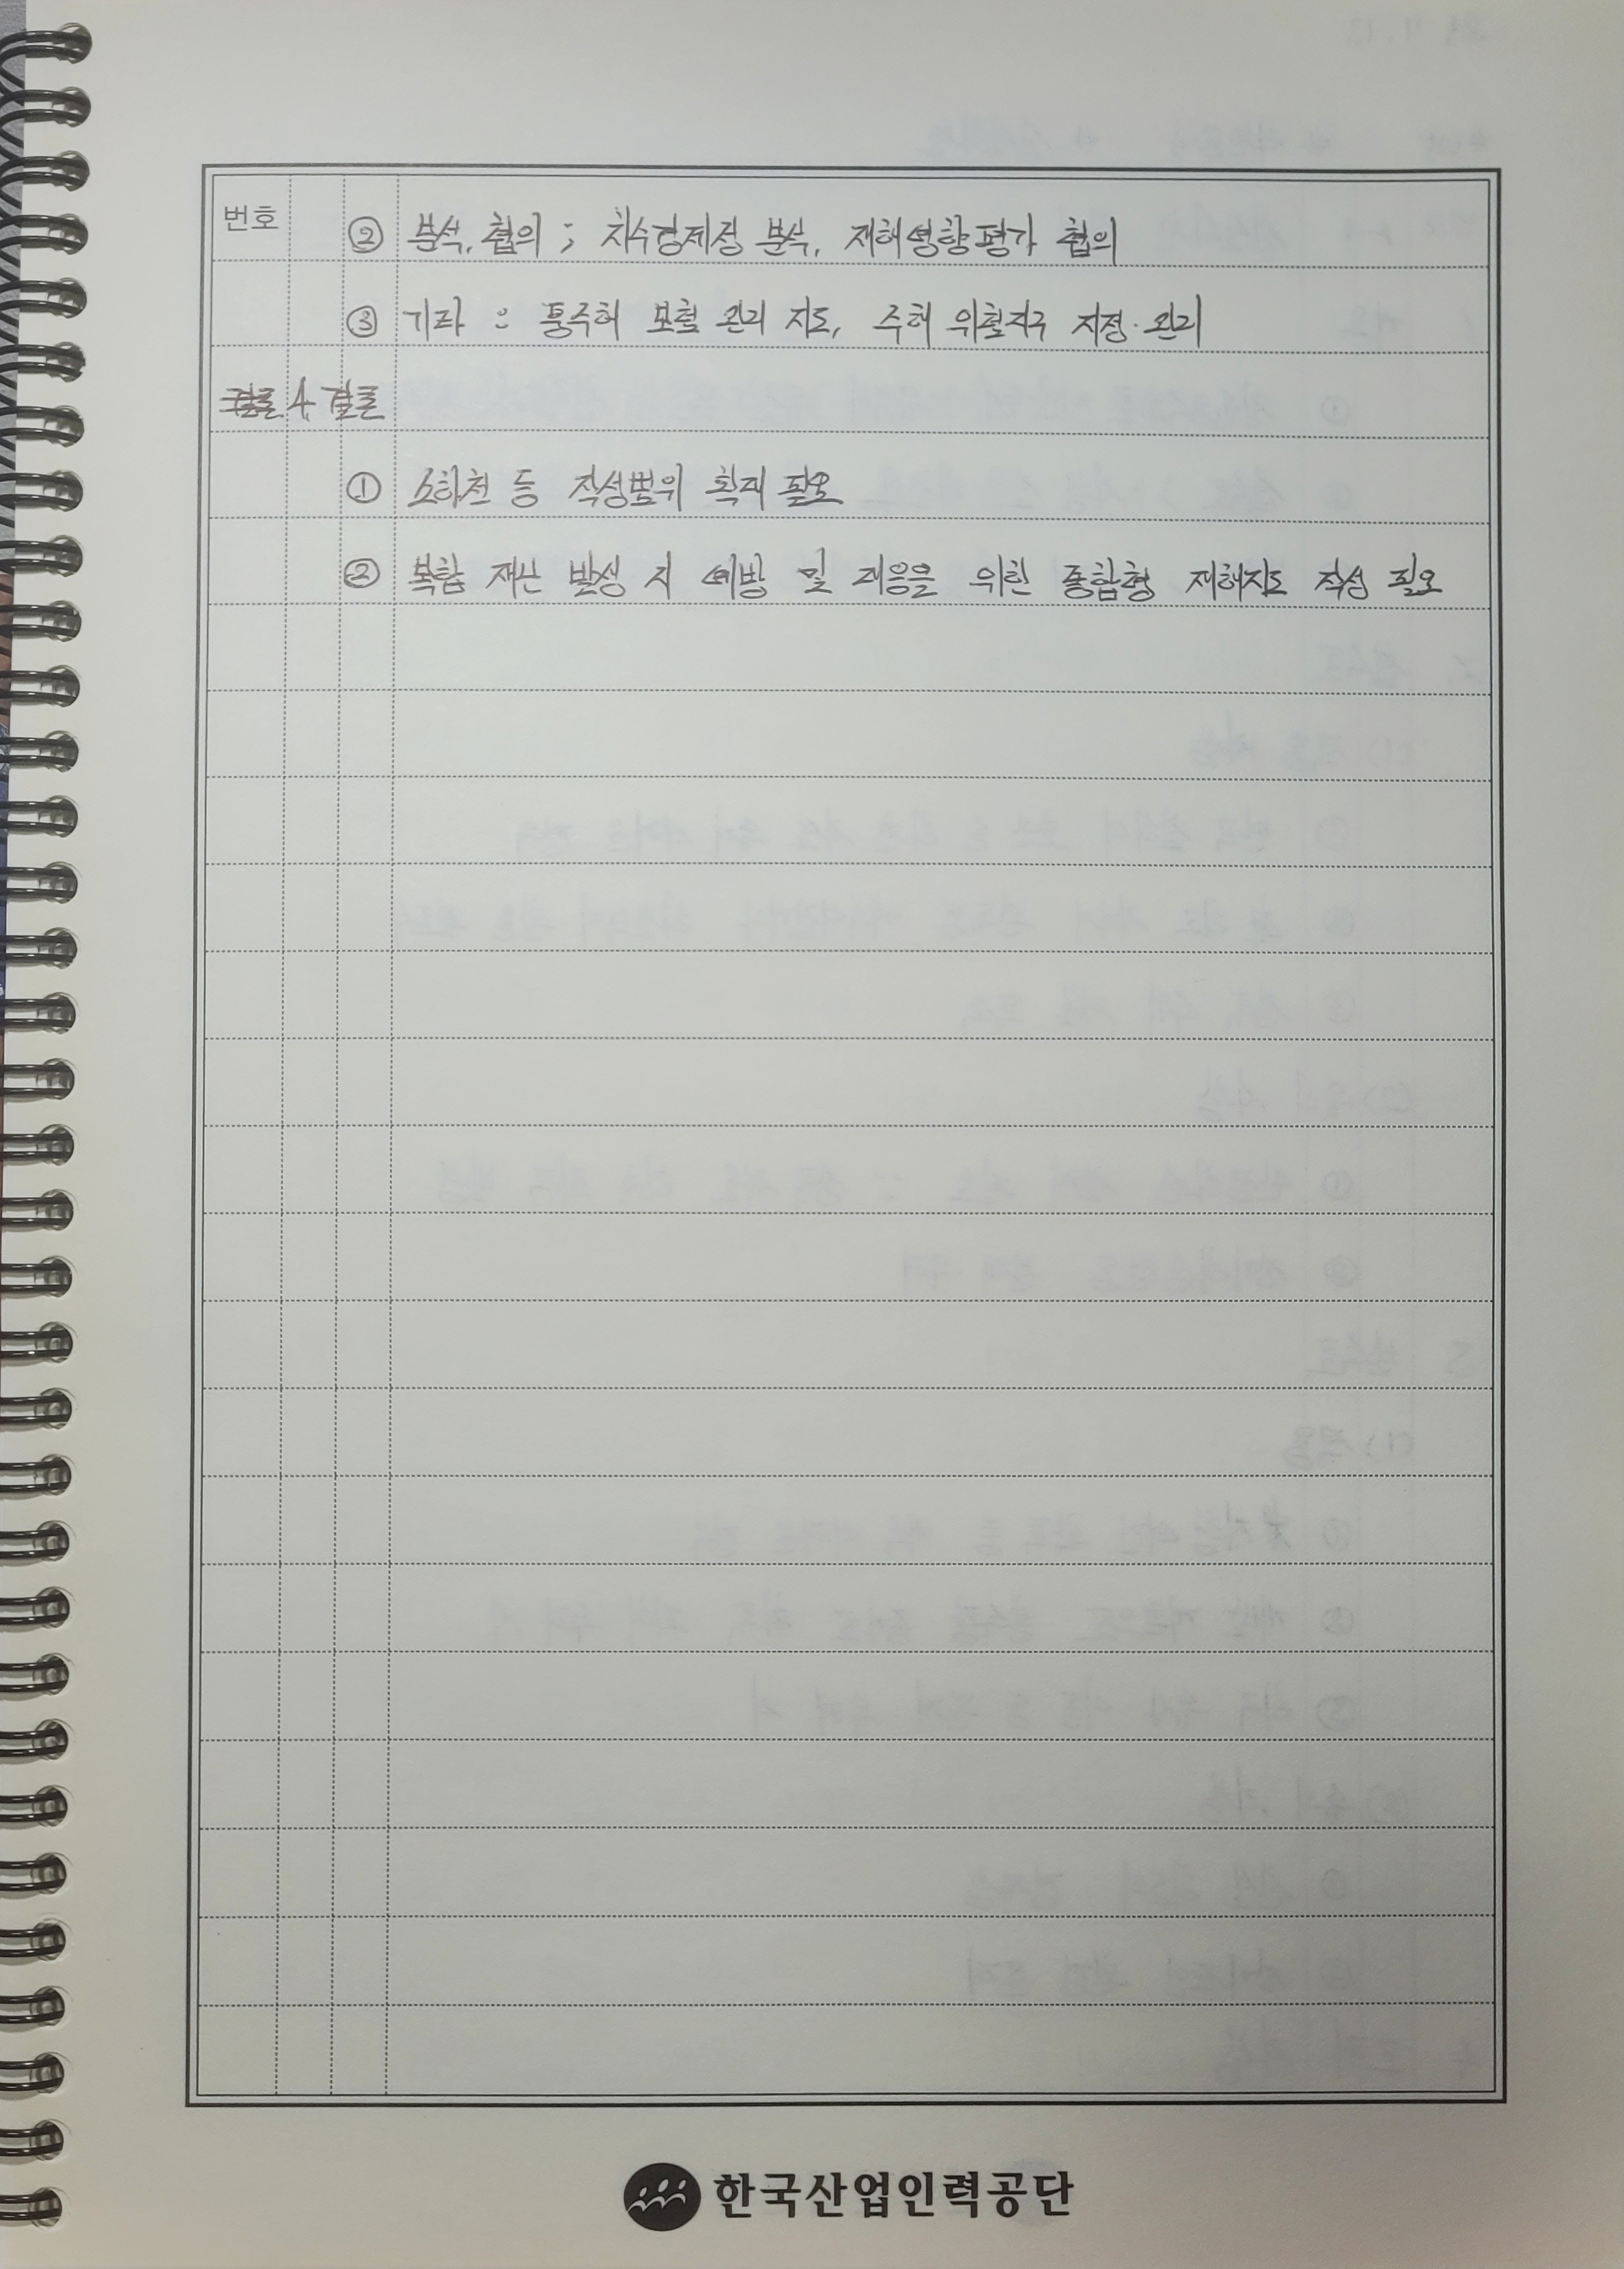 번호 ② 분석, 협의 ; 치수경제성 분석, 재해영향평가 협의
③ 기타 : 풍수해 보험 관리 지도, 수해 위험지구 지정·관리
4. 결론
① 소하천 등 작성범위 확대 필요
② 복합 재난 발생 시 예방 및 대응을 위한 종합형 재해지도 작성 필요
한국산업인력공단